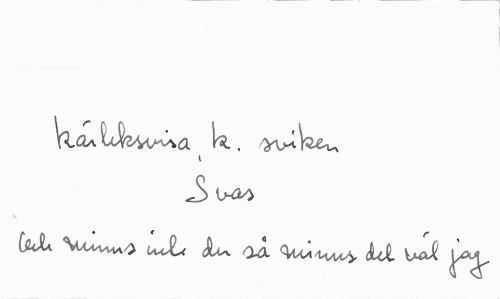 Kärleksvisa, k. sviken
Svas
Och minns inte du så minns det väl jag